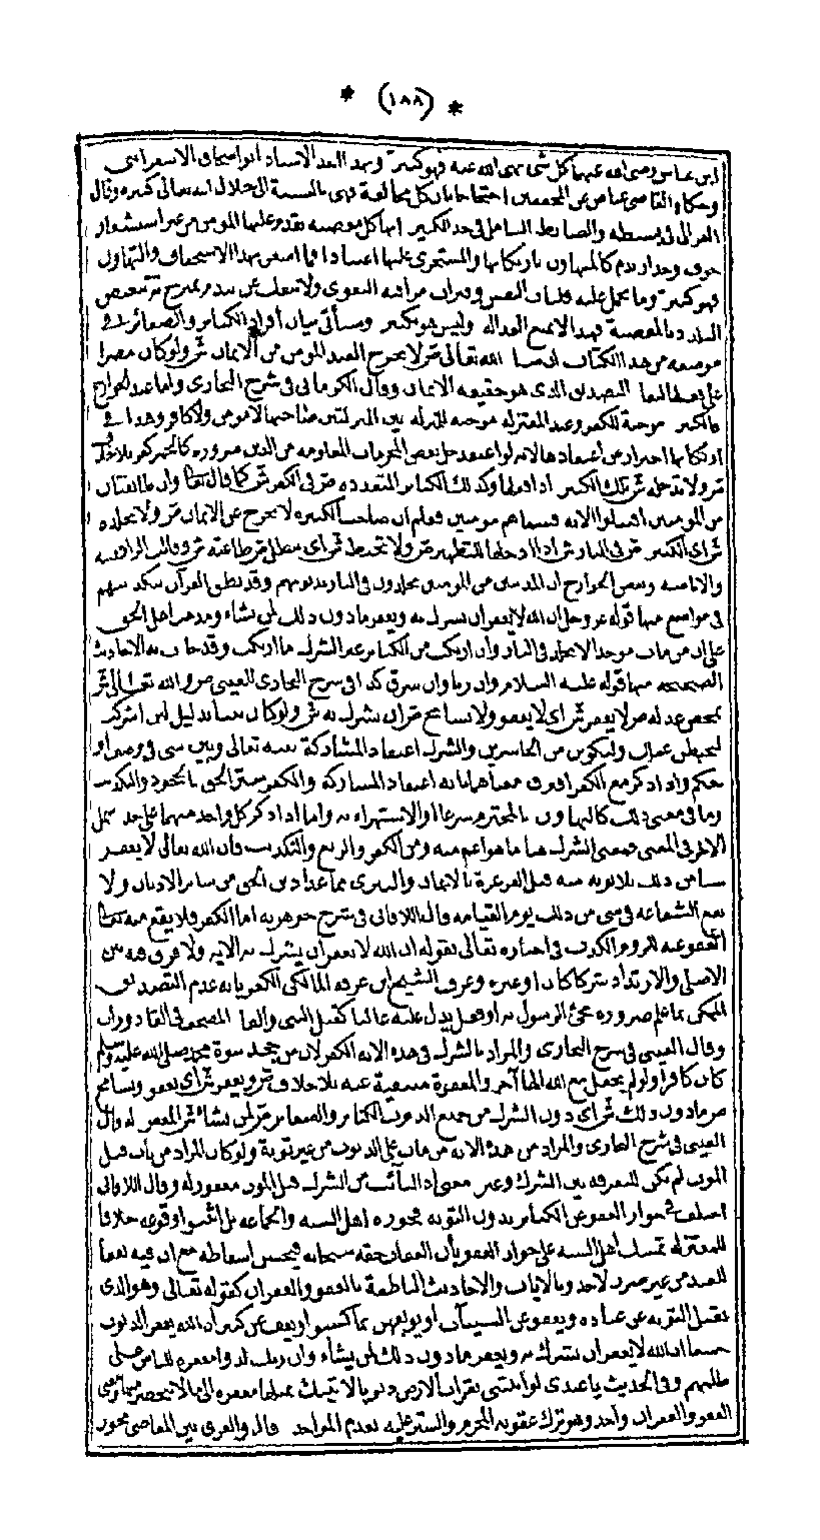 * (١٨٨) *
ابن عباس رضي الله عنهما كل شئ نهى الله عنه فهو كبيرة وبهذا أخذ الاستاذ ابو اسحاق الاسفرايني
وحكاه القاضي عياض عن المحققين احتجاجا بان كل مخالفة فهي بالنسبة الى جلال الله تعالى كبيرة وقال
الغزالي في بسيطه والضابط الشامل في حد الكبيرة انها كل معصية تقدم عليها المومن من غير استشعار
خوف وحذار ندم كالمتهاون بارتكابها والمستجري عليها اعتيادا فما اشعر بهذا الاستخفاف والتهاون
فهو كبيرة وما يحمل عليه فلتات النفس وفترات مراقبة التقوى ولا تنفك عن تندم يمتزج به تنغيص
التلذذ بالمعصية فهذا لا يمنع العدالة وليس هو بكبيرة وسيأتي بيان انواع الكبائر والصغائر في
موضعه من هذا الكتاب ان شا الله تعالى لا يخرج العبد المومن من الايمان ولو كان مصرا
على التصديق الذي هو حقيقة الايمان وقال الكرماني في شرح البخاري واما عند الخوارج
فالكبيرة موجبة للكفر وعند المعتزلة موجبة للمنزلة بين المنزلتين صاحبها لا مومن ولا كافر وهذا في
ارتكابها احتراز من اعتقادها لانه لو اعتقد حل بعض المحرمات المعلومة من الدين ضرورة كالخمر كفر بلا خلاف
ولا تدخله تلك الكبيرة اذا فعلها وكذلك الكبائر المتعددة في الكفر كما قال تعالى وان طائفتان
من المومنين اقتتلوا الاية فسماهم مومنين فعلم ان صاحب الكبيرة لا يخرج عن الايمان ولا تخلده
اي الكبيرة في النار اذا ادخلها للتطهير ولا تحبط اي تبطل طاعته وقالت الرافضة
والاباضية وبعض الخوارج ان المذنبين من المومنين يخلدون في النار بذنوبهم وقد نطق القرآن بتكذيبهم
في مواضع منها قوله عز وجل ان الله لا يغفر ان يشرك به ويغفر ما دون ذلك لمن يشاء ومذهب اهل الحق
على ان من مات موحدا لا يخلد في النار وان ارتكب من الكبائر غير الشرك ما ارتكب وقد جات به الاحاديث
الصحيحة منها قوله عليه السلام وان زنا وان سرق كذا في شرح البخاري للعيني والله تعالى
بمحض عدله لا يغفر اي لا يعفو ولا يسامح ان يشرك به ولو كان نبيا بدليل لئن اشركت
ليحبطن عملك ولتكونن من الخاسرين والشرك اعتقاد المشاركة بينه تعالى وبين شي في وصف او
حكم واذا ذكر مع الكفر افترق معناهما بانه اعتقاد المشاركة والكفر ستر الحق بالجحود والتكذيب
وما في معنى ذلك كالتهاون بالمحترم شرعا او الاستهزاء به واما اذا ذكر كل واحد منهما على حدة شمل
الاخر في المعنى فمعنى الشرك هنا ما هو اعم منه ومن الكفر والزيغ والتكذيب فان الله تعالى لا يغفر
شيا من ذلك بلا توبة منه قبل الغرغرة بالايمان والتبري مما عدا دين الحق من سائر الاديان ولا
تقع الشفاعة في شي من ذلك يوم القيامة قال اللاقاني في شرح جوهرته اما الكفر فلا يقع منه تعالى
العفو عنه للزوم الكذب في اخباره تعالى بقوله ان الله لا يغفر ان يشرك به الاية ولا فرق فيه بين
الاصلي والارتداد شركا كان او غيره وعرف الشيخ ابن عرفة المالكي الكفر بانه عدم التصديق
الحكمي بما علم ضرورة مجئ الرسول به او فعل يدل عليه غالبا كقتل النبي والقا المصحف في القاذورات
وقال العيني في شرح البخاري والمراد بالشرك في هذه الاية الكفر لان من جحد نبوة محمد صلى الله عليه وسلم
كان كافرا ولو لم يجعل مع الله الها آخر والمغفرة منتفية عنه بلا خلاف ويغفر اي يعفو ويسامح
ما دون ذلك اي دون الشرك من جميع الذنوب الكبائر والصغائر لمن يشاء المغفرة له وقال
العيني في شرح البخاري والمراد من هذه الاية من مات على الذنوب من غير توبة ولو كان المراد من تاب قبل
الموت لم يكن للتفرقة بين الشرك وغيره معنى اذ التائب من الشرك قبل الموت مغفور له وقال اللاقاني
اختلف في جواز العفو عن الكبائر بدون التوبة فجوزه اهل السنة والجماعة بل اثبتوا وقوعه خلافا
للمعتزلة تمسك اهل السنة على جواز العفو بأن العقاب حقه سبحانه فيحسن اسقاطه مع ان فيه نفعا
للعبد من غير ضرر لاحد وبالايات والاحاديث الناطقة بالعفو والغفران كقوله تعالى وهو الذي
يقبل التوبة عن عباده ويعفو عن السيئات او يوبقهن بما كسبوا ويعف عن كثير ان الله يغفر الذنوب
جميعا ان الله لا يغفر ان يشرك به ويغفر ما دون ذلك لمن يشاء وان ربك لذو مغفرة للناس على
ظلمهم وفي الحديث يا عبدي لو اتيتني بقراب الارض ذنوبا لاتيتك بمثلها مغفرة الى ما لا ينحصر
العفو والغفران واحد وهو ترك عقوبة المجرم والستر عليه بعدم المواخذة قال والفرق بين المعاصي فجوز